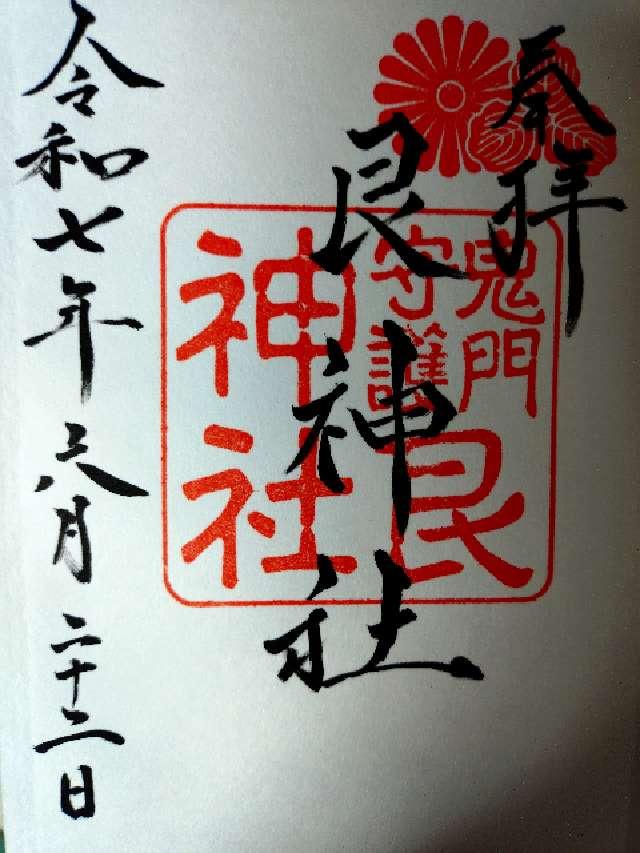 奉拝
鬼門
守護
艮
神社
艮神社
令和七年六月二十二日